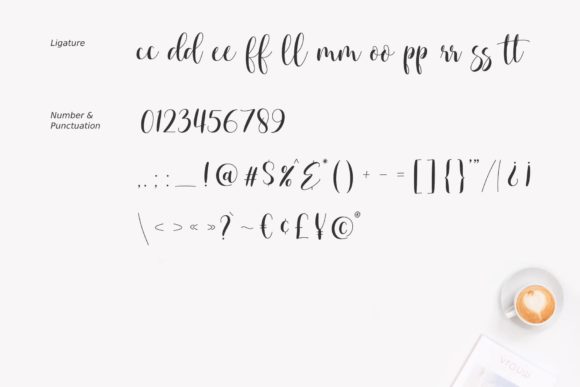 Ligature
cc dd ee ff ll mm oo pp rr ss tt
Number &
Punctuation
0123456789
,.;:_!@#$%^&*()+-=[]{}'"/|¿¡
\<>«»?`~€¢£¥©®